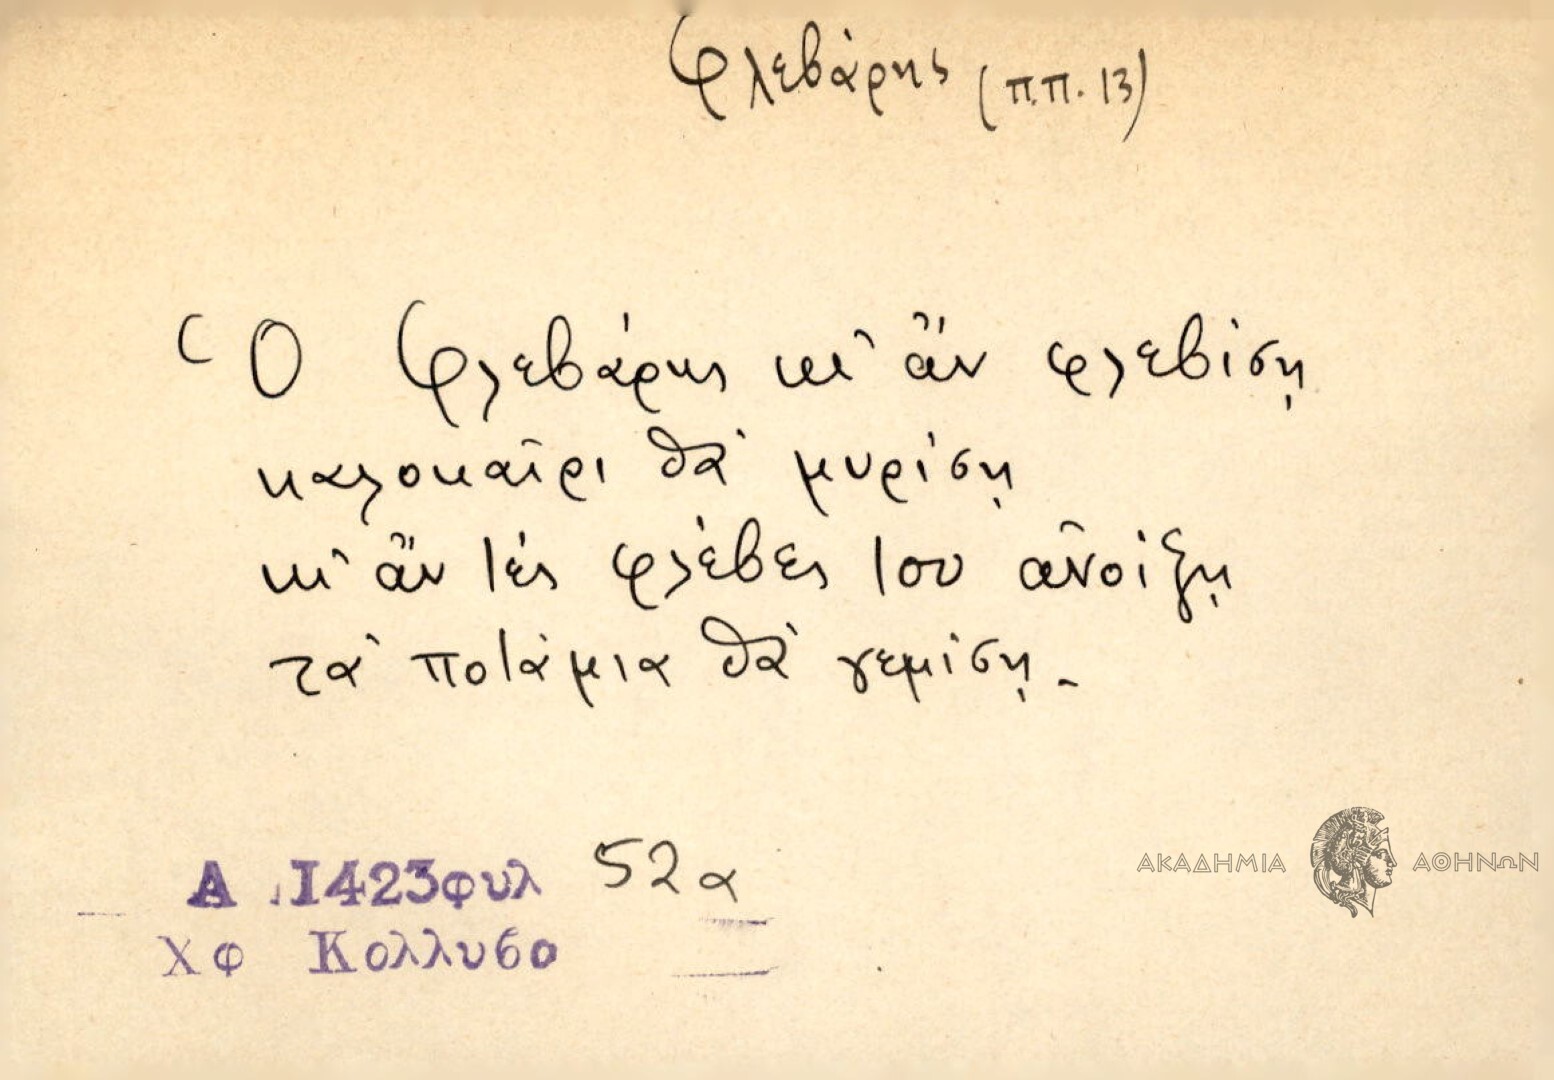 Φλεβάρης (π.π. 13)
Ὁ Φλεβάρης κι᾽ ἂν φλεβίση
καλοκαῖρι θὰ μυρίση
κι᾽ ἂν τὲς φλέβες του ἀνοίξη
τὰ ποτάμια θὰ γεμίση.
Α 1423φυλ 52α
Χφ Κολλυβο
ΑΚΑΔΗΜΙΑ ΑΘΗΝΩΝ